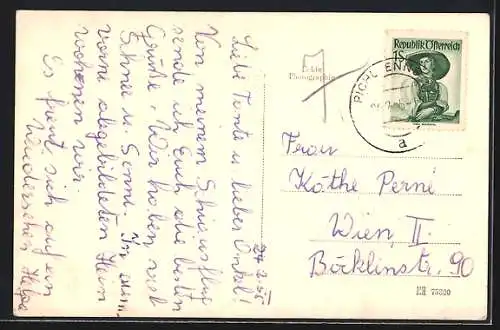 24.2.55
Liebe Tante u. lieber Onkel!
Von meinem Schiausflug
sende ich Euch die besten
Grüße. Wir haben viel
Schnee u. Sonne. In dem
vorne abgebildeten Heim
wohnen wir.
Es freut sich auf ein
Wiedersehen Helga
Echte
Photographie
Republik Österreich
1S
PICHL ENNS
a
Frau
Käthe Perné
Wien, II.
Böcklinstr. 90